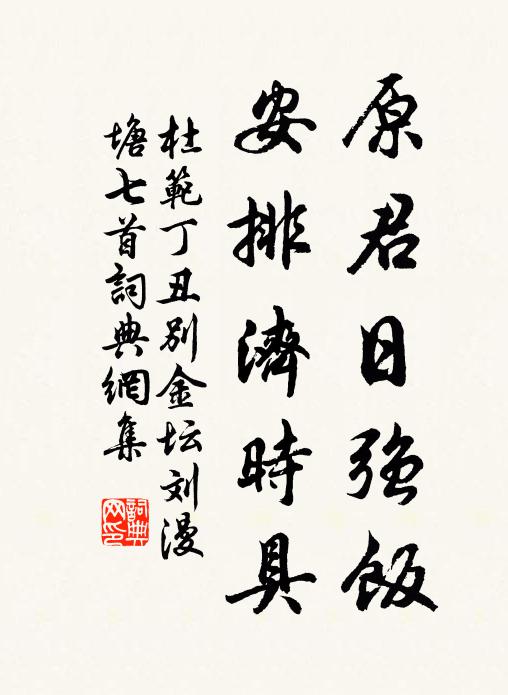 原君日強飯
安排濟時具
杜範丁丑別金坛刘漫
塘七首詞典網集
詞典网印